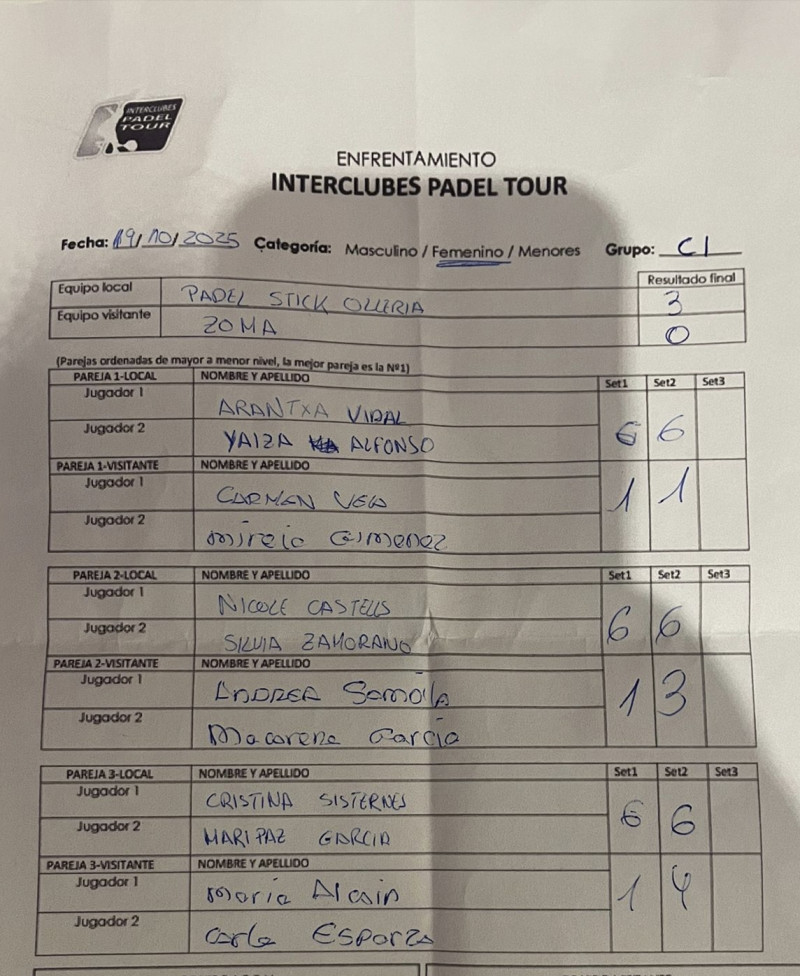 INTERCLUBES
PADEL
TOUR
ENFRENTAMIENTO
INTERCLUBES PADEL TOUR
Fecha: 19/10/2025 Categoría: Masculino / Femenino / Menores Grupo: C1
Resultado final
Equipo local PADEL STICK OLLERIA 3
Equipo visitante ZOMA 0
(Parejas ordenadas de mayor a menor nivel, la mejor pareja es la Nº1)
PAREJA 1-LOCAL NOMBRE Y APELLIDO Set1 Set2 Set3
Jugador 1 ARANTXA VIDAL
Jugador 2 YAIZA ALFONSO 6 6
PAREJA 1-VISITANTE NOMBRE Y APELLIDO
Jugador 1 CARMEN VELA 1 1
Jugador 2 Mireia Gimenez
PAREJA 2-LOCAL NOMBRE Y APELLIDO Set1 Set2 Set3
Jugador 1 NICOLE CASTELLS
Jugador 2 SILVIA ZAMORANO 6 6
PAREJA 2-VISITANTE NOMBRE Y APELLIDO
Jugador 1 ANDREA 1 3
Jugador 2 Macarena García
PAREJA 3-LOCAL NOMBRE Y APELLIDO Set1 Set2 Set3
Jugador 1 CRISTINA SISTERNES
Jugador 2 MARI PAZ GARCIA 6 6
PAREJA 3-VISITANTE NOMBRE Y APELLIDO
Jugador 1 María 1 4
Jugador 2 Carla Esparza